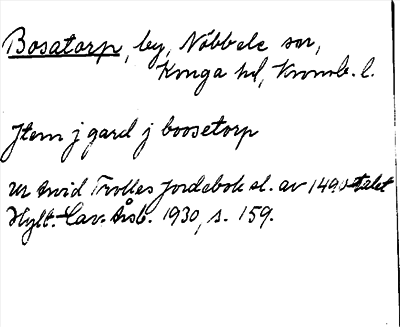 Bosatorp, by, Nöbbele sn,
Konga hd, Kronob. l.
Jtem j gard j boosetorp
ur Arvid Trolles jordebok sl. av 1490-talet
Hylt.-Cav. Årsb. 1930, s. 159.